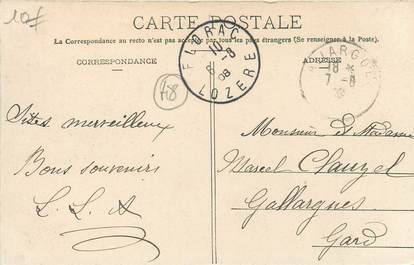 10f
CARTE POSTALE
La Correspondance au recto n'est pas acceptée par tous les pays étrangers (Se renseigner à la Poste).
CORRESPONDANCE
ADRESSE
FLORAC
10
8
08
LOZERE
48
8
7 - 8
Sites merveilleux
Bons souvenirs
L. L. A
Monsieur et Madame
Marcel Clauzel
Gallargues
Gard